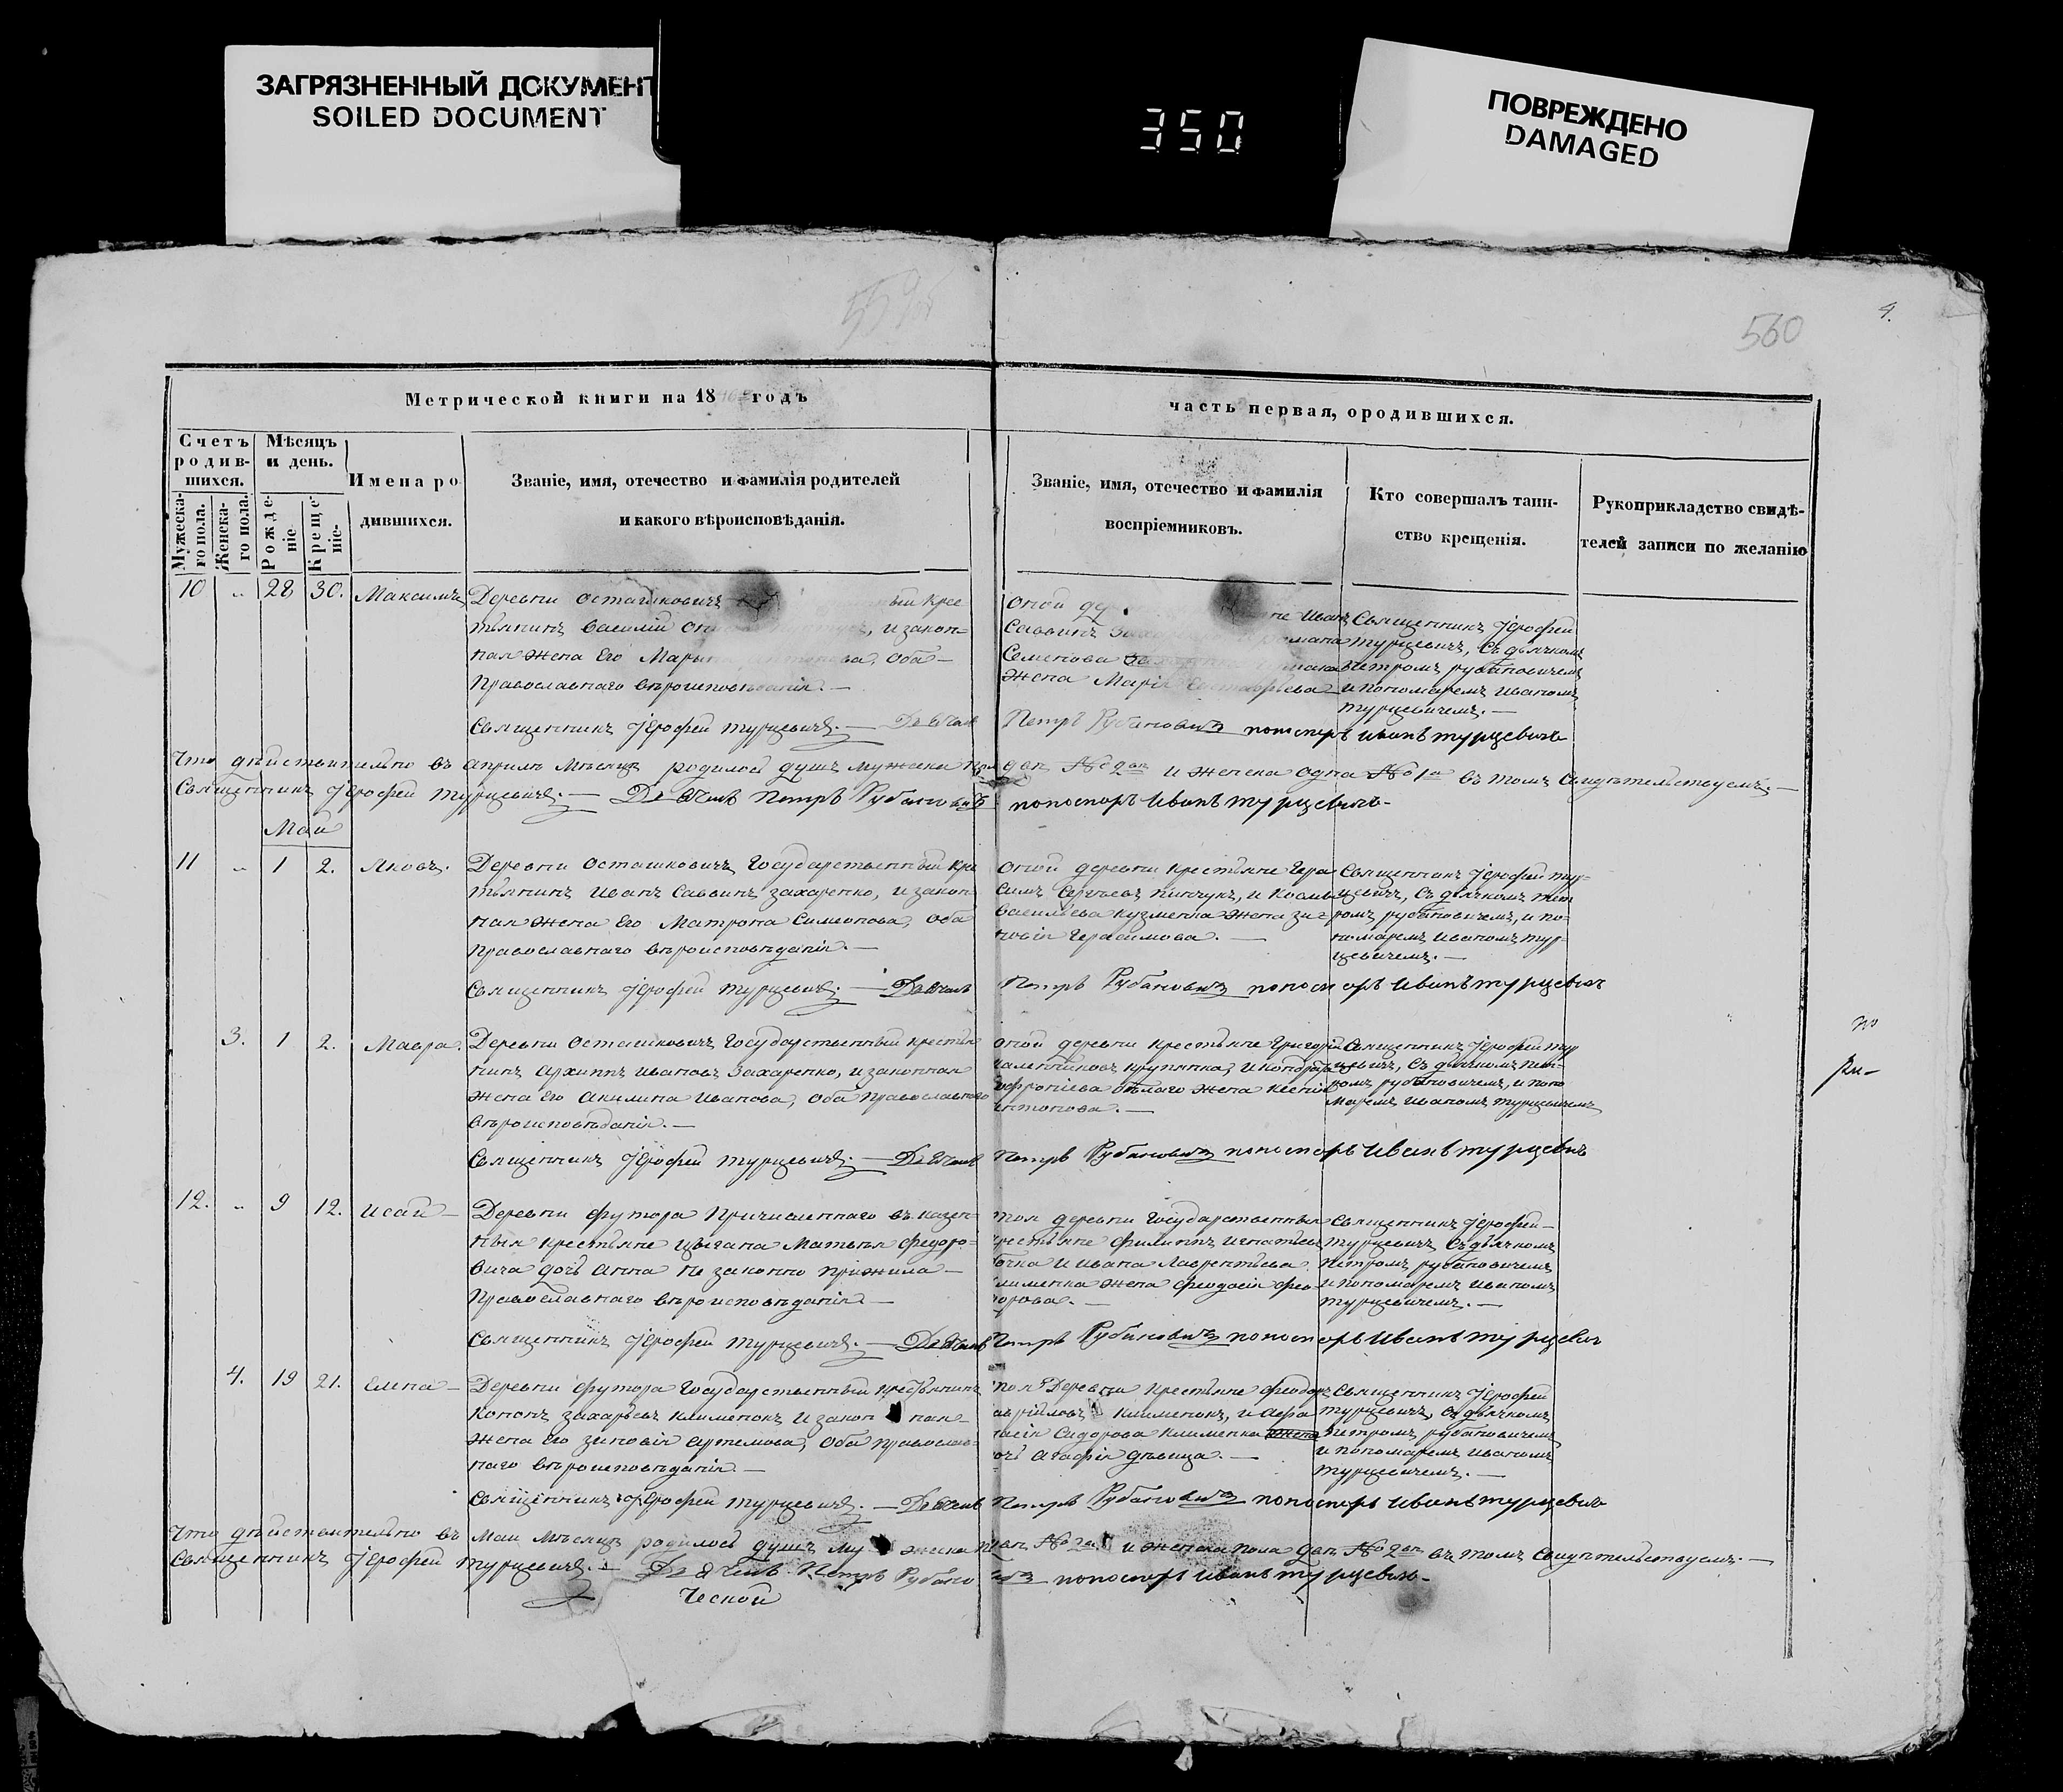 ЗАГРЯЗНЕННЫЙ ДОКУМЕНТ
SOILED DOCUMENT
350
ПОВРЕЖДЕНО
DAMAGED
560
4.
Метрической книги на 18 годъ
часть первая, ородившихся.
Счетъ родив-шихся.
Мужеска-го пола.
Женска-го пола.
Мѣсяцъ и день.
Рожде-ніе.
Креще-ніе.
Имена ро
дившихся.
Званіе, имя, отечество и фамилія родителей
и какого вѣроисповѣданія.
Званіе, имя, отечество и фамилія
воспріемниковъ.
Кто совершалъ таин-
ство крещенія.
Рукоприкладство свидѣ-
телей записи по желанію
10 „ 28 30. Максимъ
Деревни Осташковичъ
тьянинъ Василій , и закон-
ная жена Его , оба
Православнаго вѣроисповѣданія. —
оной Иванъ
Саввинъ
Семенова
жена Марія
Священникъ Іерофей
Турцевичъ, съ дьячкомъ
Петромъ Рубановичемъ
и пономаремъ Иваномъ
Турцевичемъ. —
Священникъ Іерофей Турцевичъ. — Дьячекъ Петръ Рубановичъ пономаръ Иванъ Турцевичъ
Что дѣйствительно въ априлѣ мѣсяцѣ родилось душъ мужеска и женска одна въ томъ свидѣтельствуемъ. —
Священникъ Іерофей Турцевичъ. — Дьячекъ Петръ Рубановичъ пономаръ Иванъ Турцевичъ.
Май
11 „ 1 2. Яковъ.
Деревни Осташковичъ Государственный кре
тьянинъ Иванъ Саввинъ Захаренко, и закон-
ная жена Его Матрона Симеонова, оба
Православнаго вѣроисповѣданія. —
оной деревни крестьяне Гера
симъ Сергѣевъ Пинчукъ, и Космы
Васильева Кузменка жена Зи-
новія Герасимова. —
Священникъ Іерофей Тур-
цевичъ, съ дьячкомъ Пет
ромъ Рубановичемъ, и по-
номаремъ Иваномъ Тур-
цевичемъ. —
Священникъ Іерофей Турцевичъ. — Дьячекъ Петръ Рубановичъ пономаръ Иванъ Турцевичъ
3. 1 2. Мавра.
Деревни Осташковичъ Государственный крестья
нинъ Архипъ Ивановъ Захаренко, и законная
жена Его Акилина Иванова, оба Православнаго
вѣроисповѣданія. —
оной деревни крестьяне Григорій
Крупянка, и Кондрата
офроніева Бѣлаго жена Ксенія
нтонова. —
Священникъ Іерофей Тур
цевичъ, съ дьячкомъ Пет-
ромъ Рубановичемъ, и поно
маремъ Иваномъ Турцевичемъ
Священникъ Іерофей Турцевичъ. — Дьячекъ Петръ Рубановичъ пономаръ Иванъ Турцевичъ
12. „ 9 12. Исай —
Деревни Футора Причисленнаго въ казен-
ныя крестьяне цыгана Матвея Федоро-
вича дочь Анна не законно прижила —
Православнаго вѣроисповѣданія. —
той деревни Государственныя
рестьяне Филиппъ Игнатьевъ
и Ивана Лаврентьева
лименка жена Феодосія Фео
дорова. —
Священникъ Іерофей —
Турцевичъ съ дьячкомъ
Петромъ Рубановичемъ
и пономаремъ Иваномъ
Турцевичемъ. —
Священникъ Іерофей Турцевичъ. — Дьячекъ Петръ Рубановичъ пономаръ Иванъ Турцевичъ
4. 19 21. Елена —
Деревни Футора Государственный крестьянинъ
Кононъ Захарьевъ Клименокъ и закон ная
жена Его Зиновія Артемова, оба православ-
наго вѣроисповѣданія. —
той Деревни крестьяне Феодоръ
авріиловъ Клименокъ, и Афа
насія Сидорова Клименка жена
очь Агафія дѣвица. —
Священникъ Іерофей
Турцевичъ, съ дьячкомъ
Петромъ Рубановичемъ
и пономаремъ Иваномъ
Турцевичемъ. —
Священникъ Іерофей Турцевичъ. — Дьячекъ Петръ Рубановичъ пономаръ Иванъ Турцевичъ
Что дѣйствительно въ маи мѣсяцѣ родилось душъ му жеска и женска пола двѣ въ томъ свидѣтельствуемъ. —
Священникъ Іерофей Турцевичъ. — Дьячекъ Петръ Рубановичъ пономаръ Иванъ Турцевичъ.
Ческой